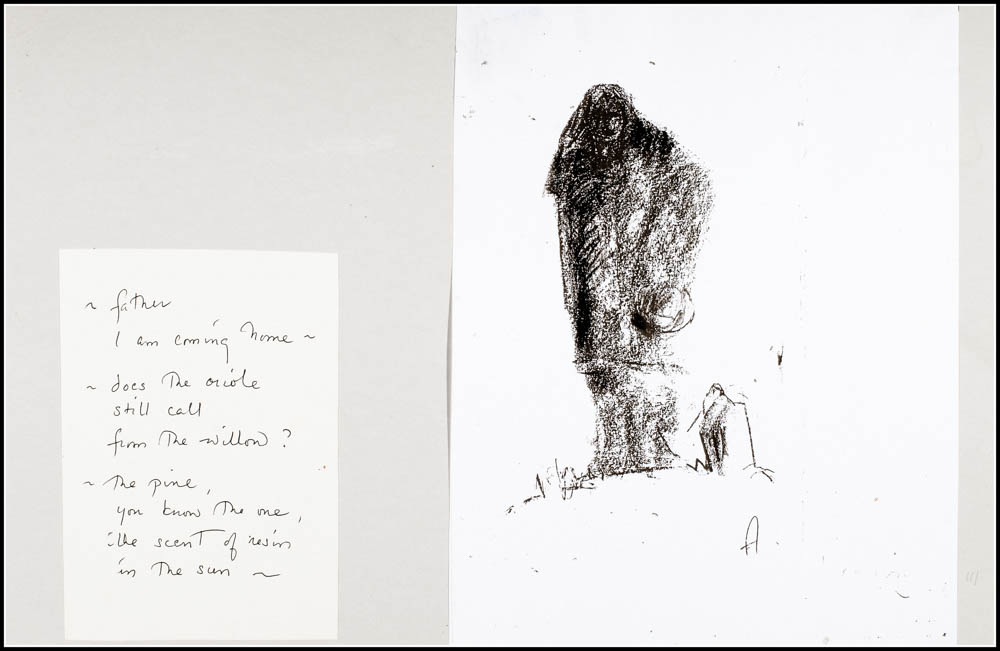 ~ father
I am coming home ~
~ does the oriole
still call
from the willow?
~ the pine,
you know the one,
the scent of resin
in the sun ~
A